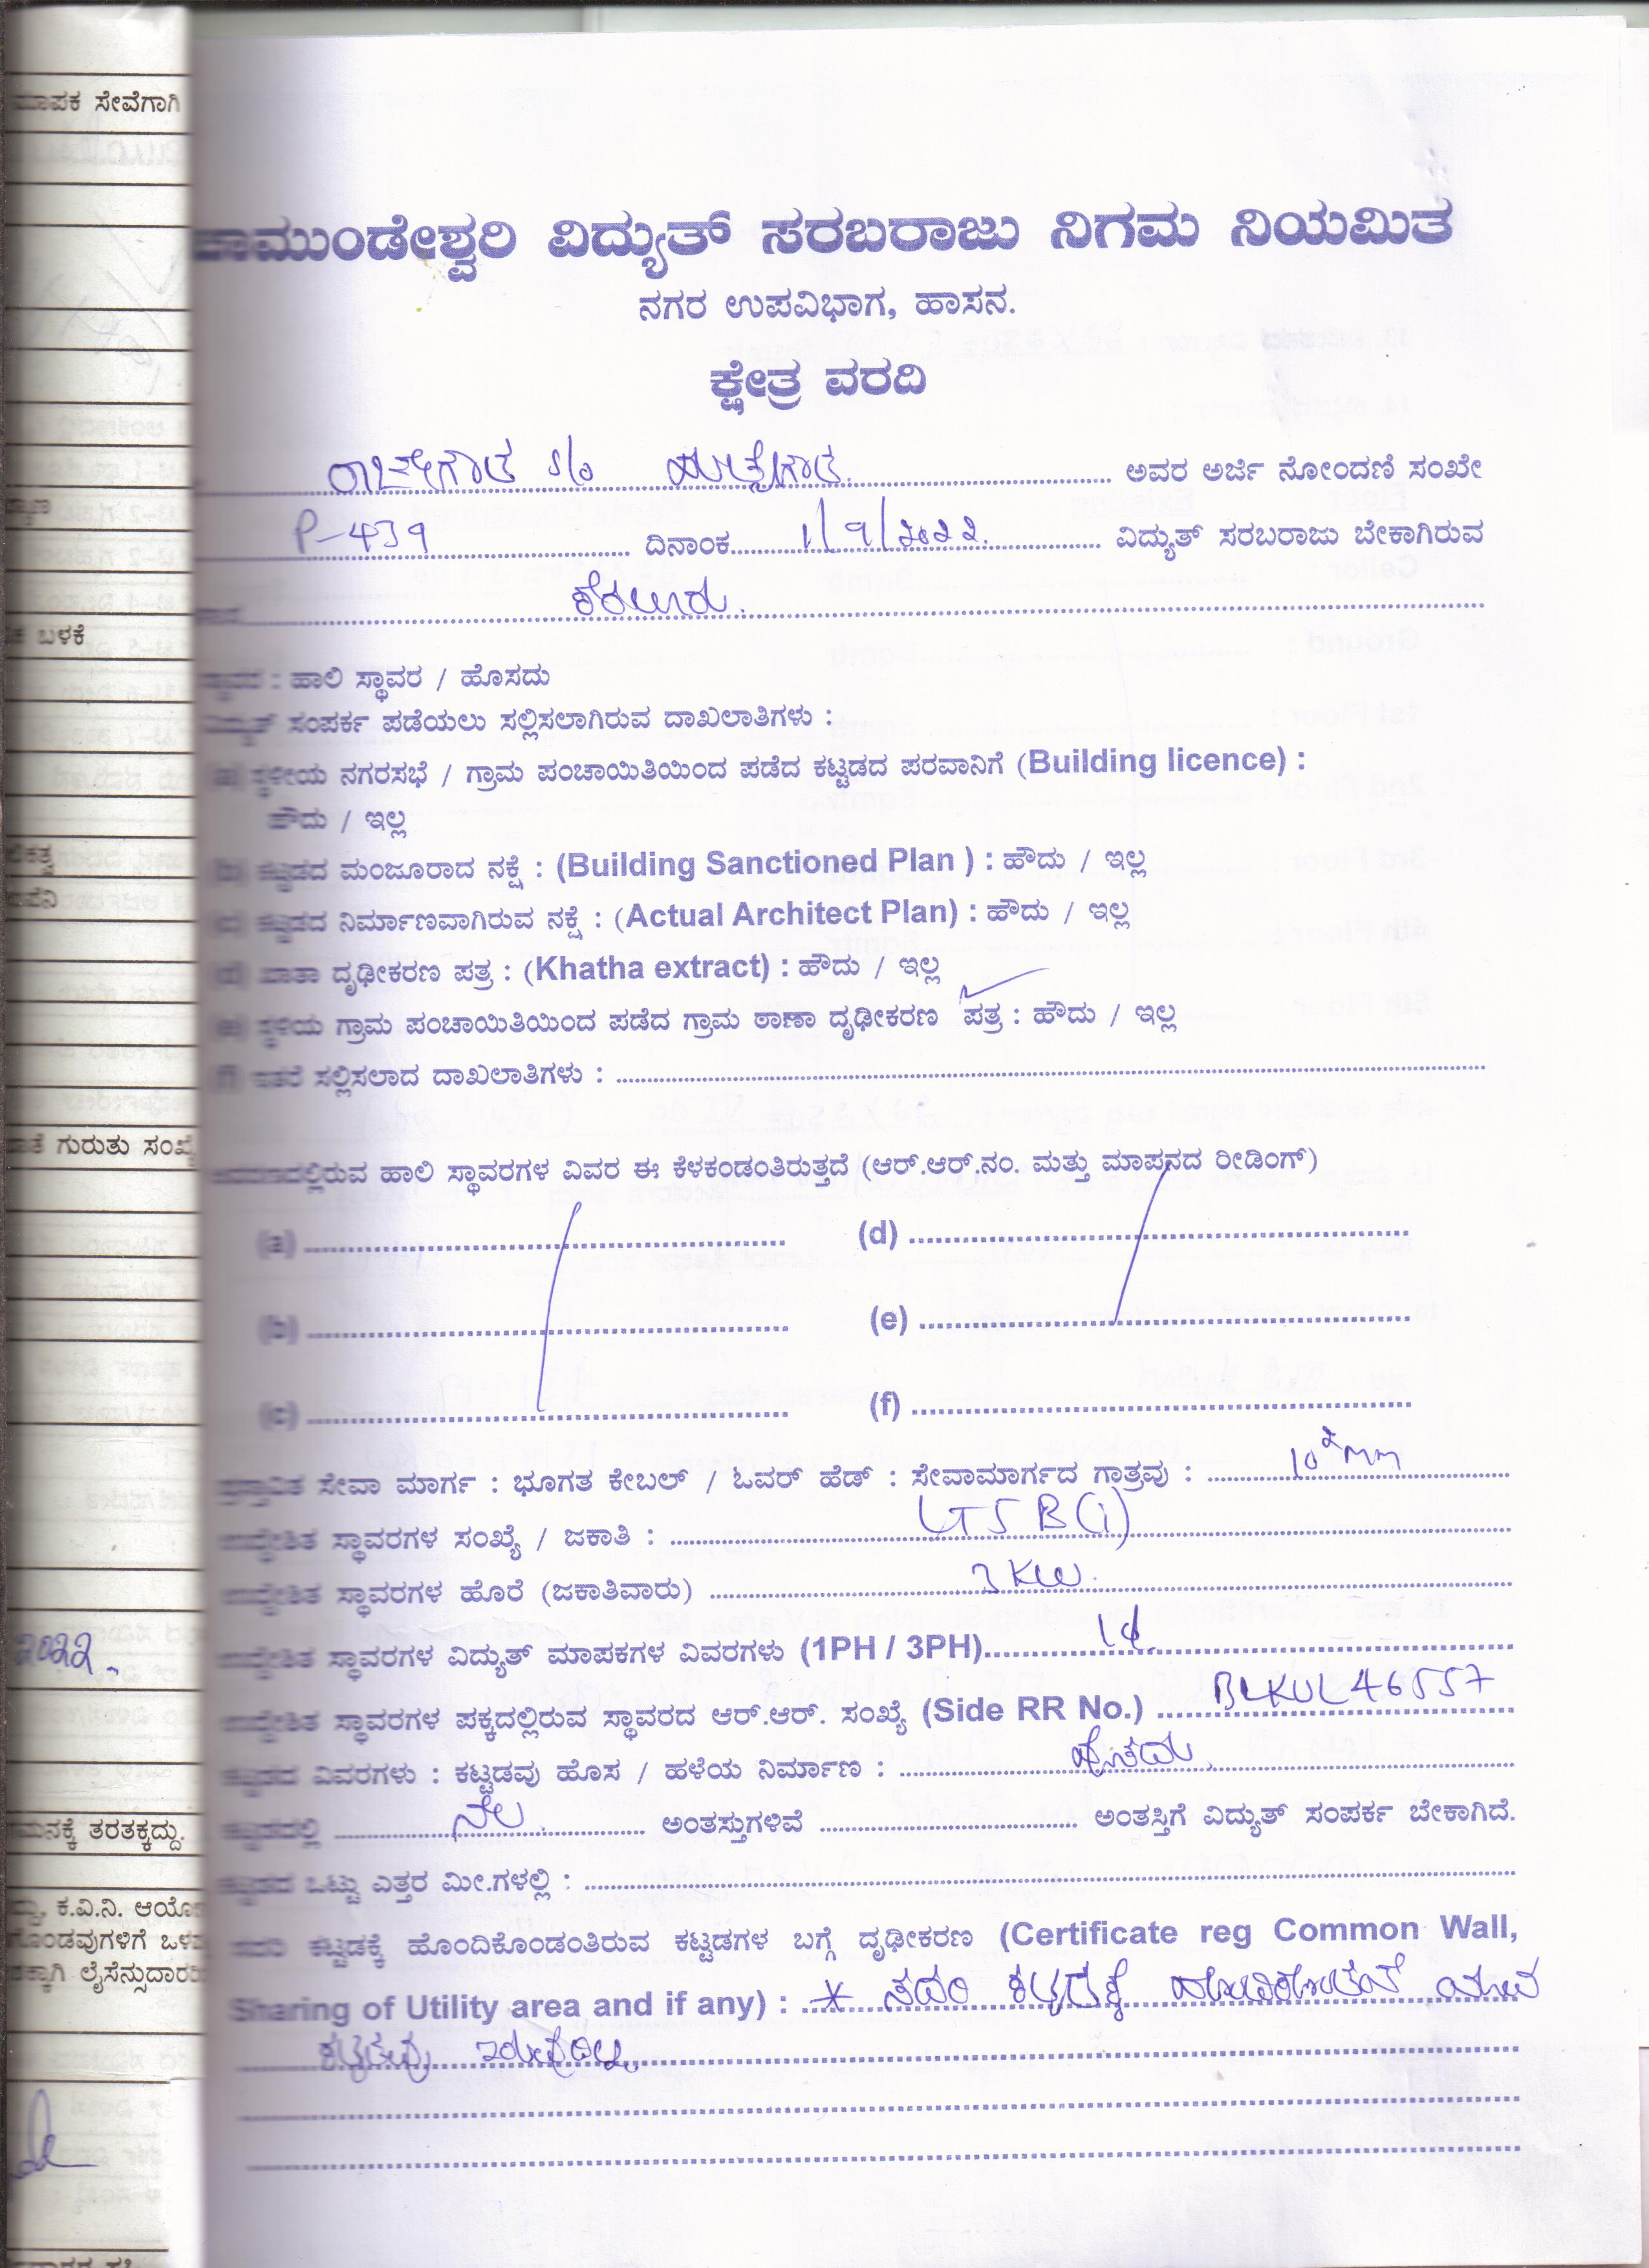 ಮಾಪಕ ಸೇವೆಗಾಗಿ
ಬಳಕೆ
ಗುರುತು ಸಂಖ್ಯೆ
2022.
ತರತಕ್ಕದ್ದು.
ಕ.ವಿ.ನಿ.
ಲೈಸೆನ್ಸುದಾರ
ಚಾಮುಂಡೇಶ್ವರಿ ವಿದ್ಯುತ್ ಸರಬರಾಜು ನಿಗಮ ನಿಯಮಿತ
ನಗರ ಉಪವಿಭಾಗ, ಹಾಸನ.
ಕ್ಷೇತ್ರ ವರದಿ
S/o ಅವರ ಅರ್ಜಿ ನೋಂದಣಿ ಸಂಖೇ
P-439 ದಿನಾಂಕ 1/9/2022. ವಿದ್ಯುತ್ ಸರಬರಾಜು ಬೇಕಾಗಿರುವ
ಸ್ಥಾವರ : ಹಾಲಿ ಸ್ಥಾವರ / ಹೊಸದು
ವಿದ್ಯುತ್ ಸಂಪರ್ಕ ಪಡೆಯಲು ಸಲ್ಲಿಸಲಾಗಿರುವ ದಾಖಲಾತಿಗಳು :
(a) ಸ್ಥಳೀಯ ನಗರಸಭೆ / ಗ್ರಾಮ ಪಂಚಾಯಿತಿಯಿಂದ ಪಡೆದ ಕಟ್ಟಡದ ಪರವಾನಿಗೆ (Building licence) :
ಹೌದು / ಇಲ್ಲ
(b) ಕಟ್ಟಡದ ಮಂಜೂರಾದ ನಕ್ಷೆ : (Building Sanctioned Plan ) : ಹೌದು / ಇಲ್ಲ
(c) ಕಟ್ಟಡದ ನಿರ್ಮಾಣವಾಗಿರುವ ನಕ್ಷೆ : (Actual Architect Plan) : ಹೌದು / ಇಲ್ಲ
(d) ಖಾತಾ ದೃಢೀಕರಣ ಪತ್ರ : (Khatha extract) : ಹೌದು / ಇಲ್ಲ
(e) ಸ್ಥಳಿಯ ಗ್ರಾಮ ಪಂಚಾಯಿತಿಯಿಂದ ಪಡೆದ ಗ್ರಾಮ ಠಾಣಾ ದೃಢೀಕರಣ ಪತ್ರ : ಹೌದು / ಇಲ್ಲ
(f) ಇತರೆ ಸಲ್ಲಿಸಲಾದ ದಾಖಲಾತಿಗಳು :
ಹಾಲಿ ಸ್ಥಾವರಗಳ ವಿವರ ಈ ಕೆಳಕಂಡಂತಿರುತ್ತದೆ (ಆರ್.ಆರ್.ನಂ. ಮತ್ತು ಮಾಪನದ ರೀಡಿಂಗ್)
(a) (d)
(b) (e)
(c) (f)
ಸೇವಾ ಮಾರ್ಗ : ಭೂಗತ ಕೇಬಲ್ / ಓವರ್ ಹೆಡ್ : ಸೇವಾಮಾರ್ಗದ ಗಾತ್ರವು : 10²mm
ಉದ್ದೇಶಿತ ಸ್ಥಾವರಗಳ ಸಂಖ್ಯೆ / ಜಕಾತಿ : LT5 B(i)
ಉದ್ದೇಶಿತ ಸ್ಥಾವರಗಳ ಹೊರೆ (ಜಕಾತಿವಾರು) 3 KW.
ಉದ್ದೇಶಿತ ಸ್ಥಾವರಗಳ ವಿದ್ಯುತ್ ಮಾಪಕಗಳ ವಿವರಗಳು (1PH / 3PH) 1ϕ.
ಉದ್ದೇಶಿತ ಸ್ಥಾವರಗಳ ಪಕ್ಕದಲ್ಲಿರುವ ಸ್ಥಾವರದ ಆರ್.ಆರ್. ಸಂಖ್ಯೆ (Side RR No.) BLKUL46557
ಕಟ್ಟಡದ ವಿವರಗಳು : ಕಟ್ಟಡವು ಹೊಸ / ಹಳೆಯ ನಿರ್ಮಾಣ : ಹೊಸದು.
ಕಟ್ಟಡದಲ್ಲಿ ನೆಲ ಅಂತಸ್ತುಗಳಿವೆ ಅಂತಸ್ತಿಗೆ ವಿದ್ಯುತ್ ಸಂಪರ್ಕ ಬೇಕಾಗಿದೆ.
ಕಟ್ಟಡದ ಒಟ್ಟು ಎತ್ತರ ಮೀ.ಗಳಲ್ಲಿ :
ಸದರಿ ಕಟ್ಟಡಕ್ಕೆ ಹೊಂದಿಕೊಂಡಂತಿರುವ ಕಟ್ಟಡಗಳ ಬಗ್ಗೆ ದೃಢೀಕರಣ (Certificate reg Common Wall,
Sharing of Utility area and if any) : * ಸದರಿ ಕಟ್ಟಡಕ್ಕೆ ಹೊಂದಿಕೊಂಡಂತೆ ಯಾವ
ಕಟ್ಟಡವು ಇರುವುದಿಲ್ಲ